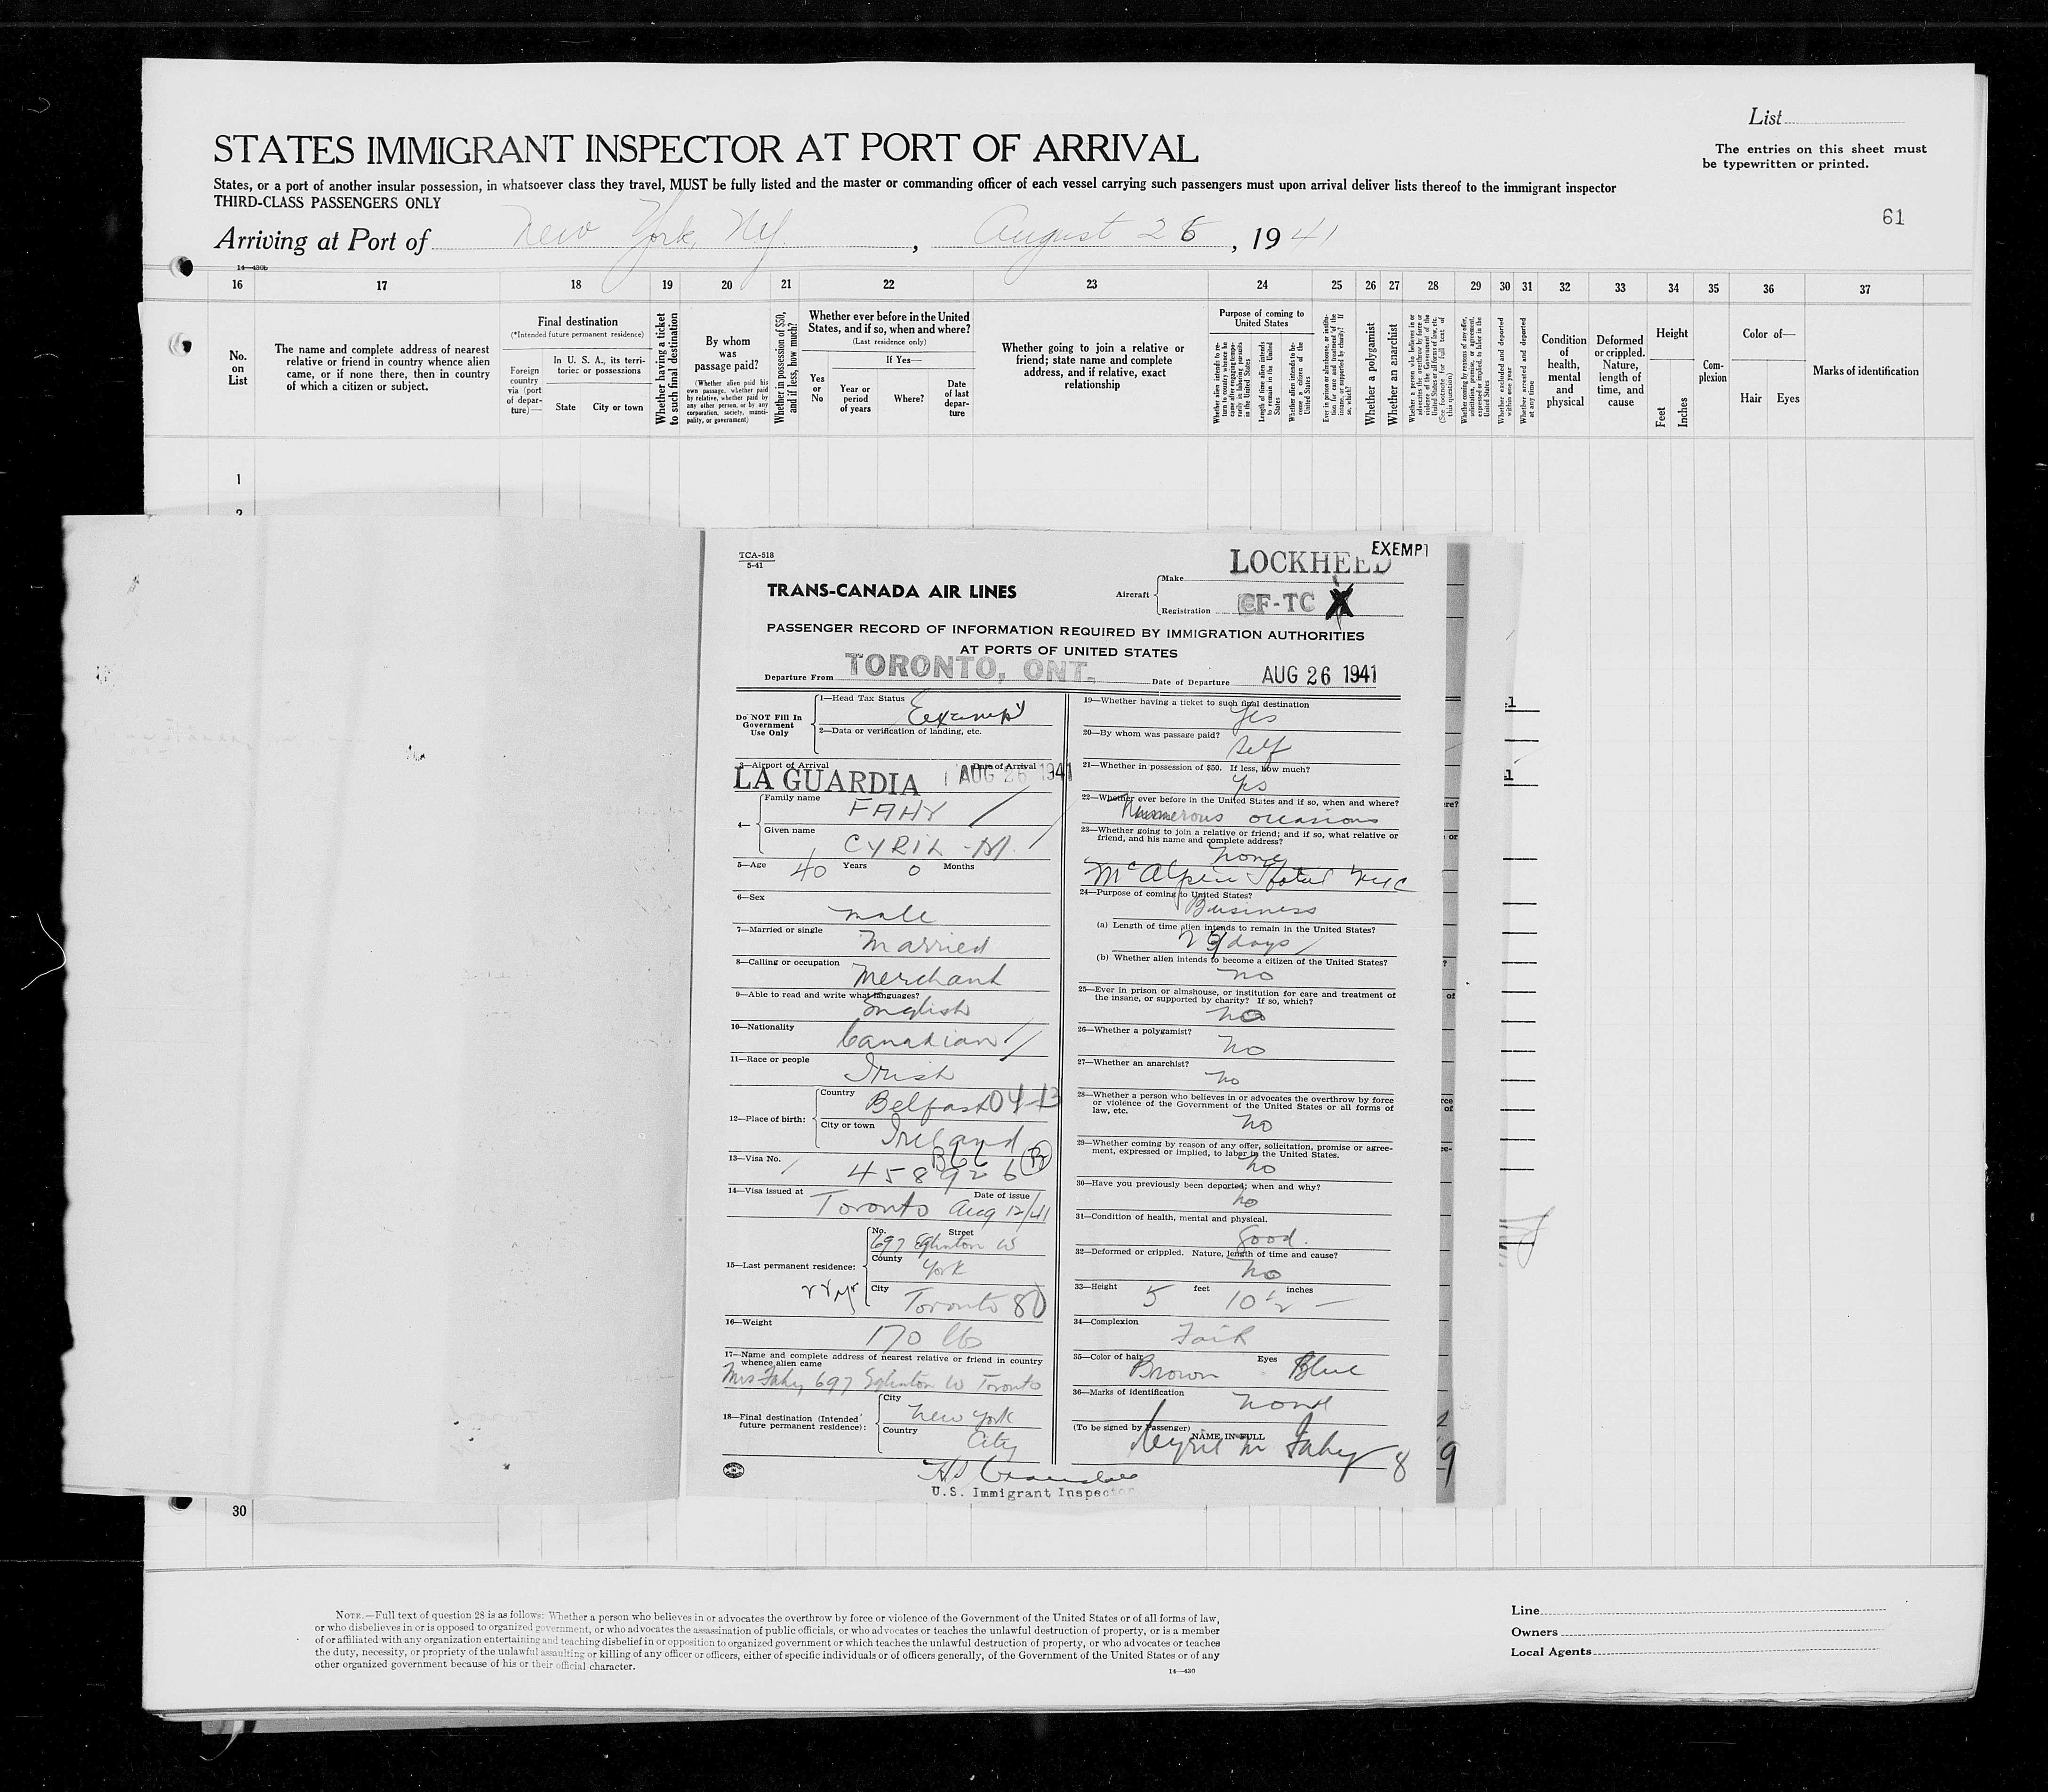 List
STATES IMMIGRANT INSPECTOR AT PORT OF ARRIVAL
The entries on this sheet must
be typewritten or printed.
States, or a port of another insular possession, in whatsoever class they travel, MUST be fully listed and the master or commanding officer of each vessel carrying such passengers must upon arrival deliver lists thereof to the immigrant inspector
THIRD-CLASS PASSENGERS ONLY
61
Arriving at Port of New York, NY, August 26, 1941
14—430b
16 17 18 19 20 21 22 23 24 25 26 27 28 29 30 31 32 33 34 35 36 37
No. on List
The name and complete address of nearest relative or friend in country whence alien came, or if none there, then in country of which a citizen or subject.
Final destination
(*Intended future permanent residence)
Foreign country via (port of departure)—
In U. S. A., its territories or possessions
State
City or town
Whether having a ticket to such final destination
By whom was passage paid?
(Whether alien paid his own passage, whether paid by relative, whether paid by any other person, or by any corporation, society, municipality, or government)
Whether in possession of $50, and if less, how much?
Whether ever before in the United States, and if so, when and where?
(Last residence only)
Yes or No
If Yes—
Year or period of years
Where?
Date of last departure
Whether going to join a relative or friend; state name and complete address, and if relative, exact relationship
Purpose of coming to United States
Whether alien intends to return to country whence he came after engaging temporarily in laboring pursuits in the United States
Length of time alien intends to remain in the United States
Whether alien intends to become a citizen of the United States
Ever in prison or almshouse, or institution for care and treatment of the insane, or supported by charity? If so, which?
Whether a polygamist
Whether an anarchist
Whether a person who believes in or advocates the overthrow by force or violence of the Government of the United States or all forms of law, etc. (See footnote for full text of this question)
Whether coming by reasons of any offer, solicitation, promise, or agreement, expressed or implied, to labor in the United States
Whether excluded and deported within one year
Whether arrested and deported at any time
Condition of health, mental and physical
Deformed or crippled. Nature, length of time, and cause
Height
Feet
Inches
Complexion
Color of—
Hair
Eyes
Marks of identification
1
2
TCA-518
5-41
LOCKHEED
EXEMPT
TRANS-CANADA AIR LINES
Aircraft
Make
Registration CF-TC X
PASSENGER RECORD OF INFORMATION REQUIRED BY IMMIGRATION AUTHORITIES
AT PORTS OF UNITED STATES
Departure From TORONTO, ONT.
Date of Departure AUG 26 1941
Do NOT Fill In Government Use Only
1—Head Tax Status
Exempt
2—Data or verification of landing, etc.
3—Airport of Arrival
Date of Arrival
LA GUARDIA AUG 26 1941
4—
Family name
FAHY
Given name
CYRIL - M.
5—Age 40 Years 0 Months
6—Sex
male
7—Married or single
Married
8—Calling or occupation
Merchant
9—Able to read and write what languages?
English
10—Nationality
Canadian
11—Race or people
Irish
12—Place of birth:
Country
Belfast
City or town
Ireland
13—Visa No.
458926
14—Visa issued at
Date of issue
Toronto Aug 12/41
15—Last permanent residence:
No.
Street
697 Eglinton W
County
York
City
Toronto
80
16—Weight
170 lbs
17—Name and complete address of nearest relative or friend in country
whence alien came
Mrs Fahy, 697 Eglinton W Toronto
18—Final destination (Intended future permanent residence):
City
New York
Country
City
U.S. Immigrant Inspector
19—Whether having a ticket to such final destination
Yes
20—By whom was passage paid?
Self
21—Whether in possession of $50. If less, how much?
Yes
22—Whether ever before in the United States and if so, when and where?
Numerous occasions
23—Whether going to join a relative or friend; and if so, what relative or
friend, and his name and complete address?
none
McAlpin Hotel NYC
24—Purpose of coming to United States?
Business
(a) Length of time alien intends to remain in the United States?
29 days
(b) Whether alien intends to become a citizen of the United States?
no
25—Ever in prison or almshouse, or institution for care and treatment of
the insane, or supported by charity? If so, which?
no
26—Whether a polygamist?
no
27—Whether an anarchist?
no
28—Whether a person who believes in or advocates the overthrow by force
or violence of the Government of the United States or all forms of
law, etc.
no
29—Whether coming by reason of any offer, solicitation, promise or agree-
ment, expressed or implied, to labor in the United States.
no
30—Have you previously been deported; when and why?
no
31—Condition of health, mental and physical.
Good.
32—Deformed or crippled. Nature, length of time and cause?
no
33—Height 5 feet 10 1/2 inches
34—Complexion
Fair
35—Color of hair Brown Eyes Blue
36—Marks of identification
none
(To be signed by Passenger)
NAME IN FULL
Cyril M Fahy
8
9
30
NOTE.—Full text of question 28 is as follows: Whether a person who believes in or advocates the overthrow by force or violence of the Government of the United States or of all forms of law,
or who disbelieves in or is opposed to organized government, or who advocates the assassination of public officials, or who advocates or teaches the unlawful destruction of property, or is a member
of or affiliated with any organization entertaining and teaching disbelief in or opposition to organized government or which teaches the unlawful destruction of property, or who advocates or teaches
the duty, necessity, or propriety of the unlawful assaulting or killing of any officer or officers, either of specific individuals or of officers generally, of the Government of the United States or of any
other organized government because of his or their official character.
14—430
Line
Owners
Local Agents